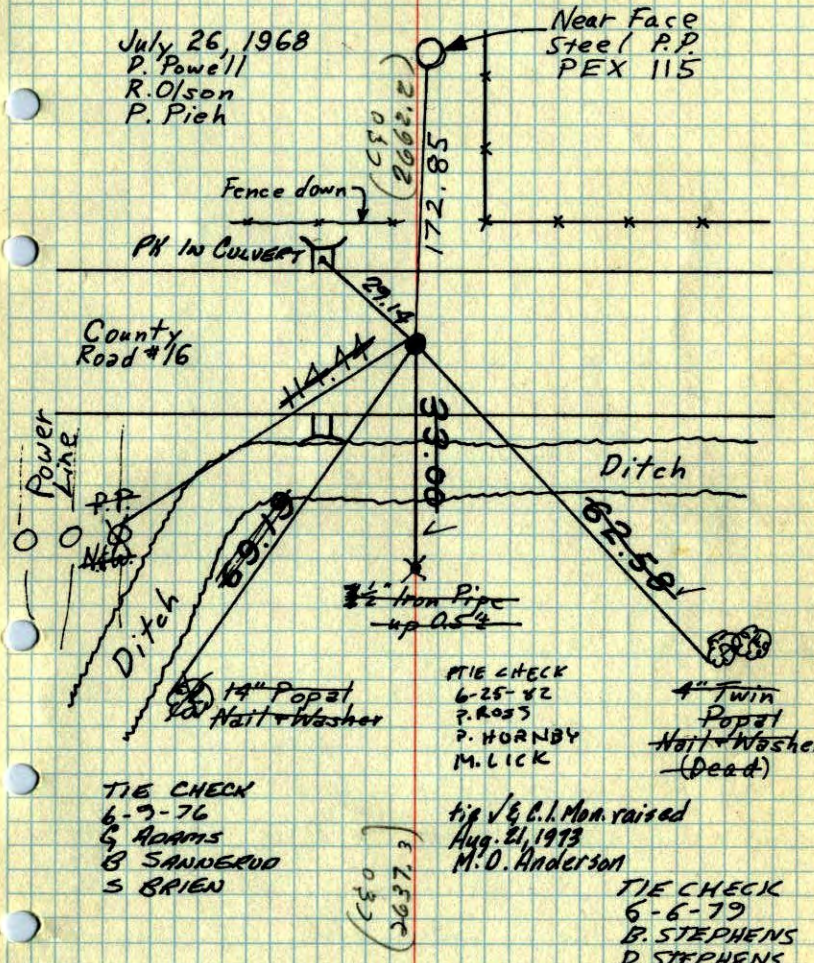 July 26, 1968
D. Powell
R. Olson
P. Pieh
Near Face
Steel P.P.
PEX 115
2662.2
172.85
Fence down
PK IN CULVERT
29.14
County
Road #16
114.44
Power
Line
P.P.
N&W.
33.00
Ditch
69.19
62.58
Ditch
1½" Iron Pipe
up 0.5'±
14" Popal
Nail & Washer
4" Twin
Popal
Nail & Washer
(Dead)
TIE CHECK
6-25-82
P. ROSS
P. HORNBY
M. LICK
TIE CHECK
6-9-76
G ADAMS
B SANNERUD
S BRIEN
tie √ & C.I. Mon. raised
Aug. 21, 1973
M.O. Anderson
2637.3
TIE CHECK
6-6-79
B. STEPHENS
D. STEPHENS